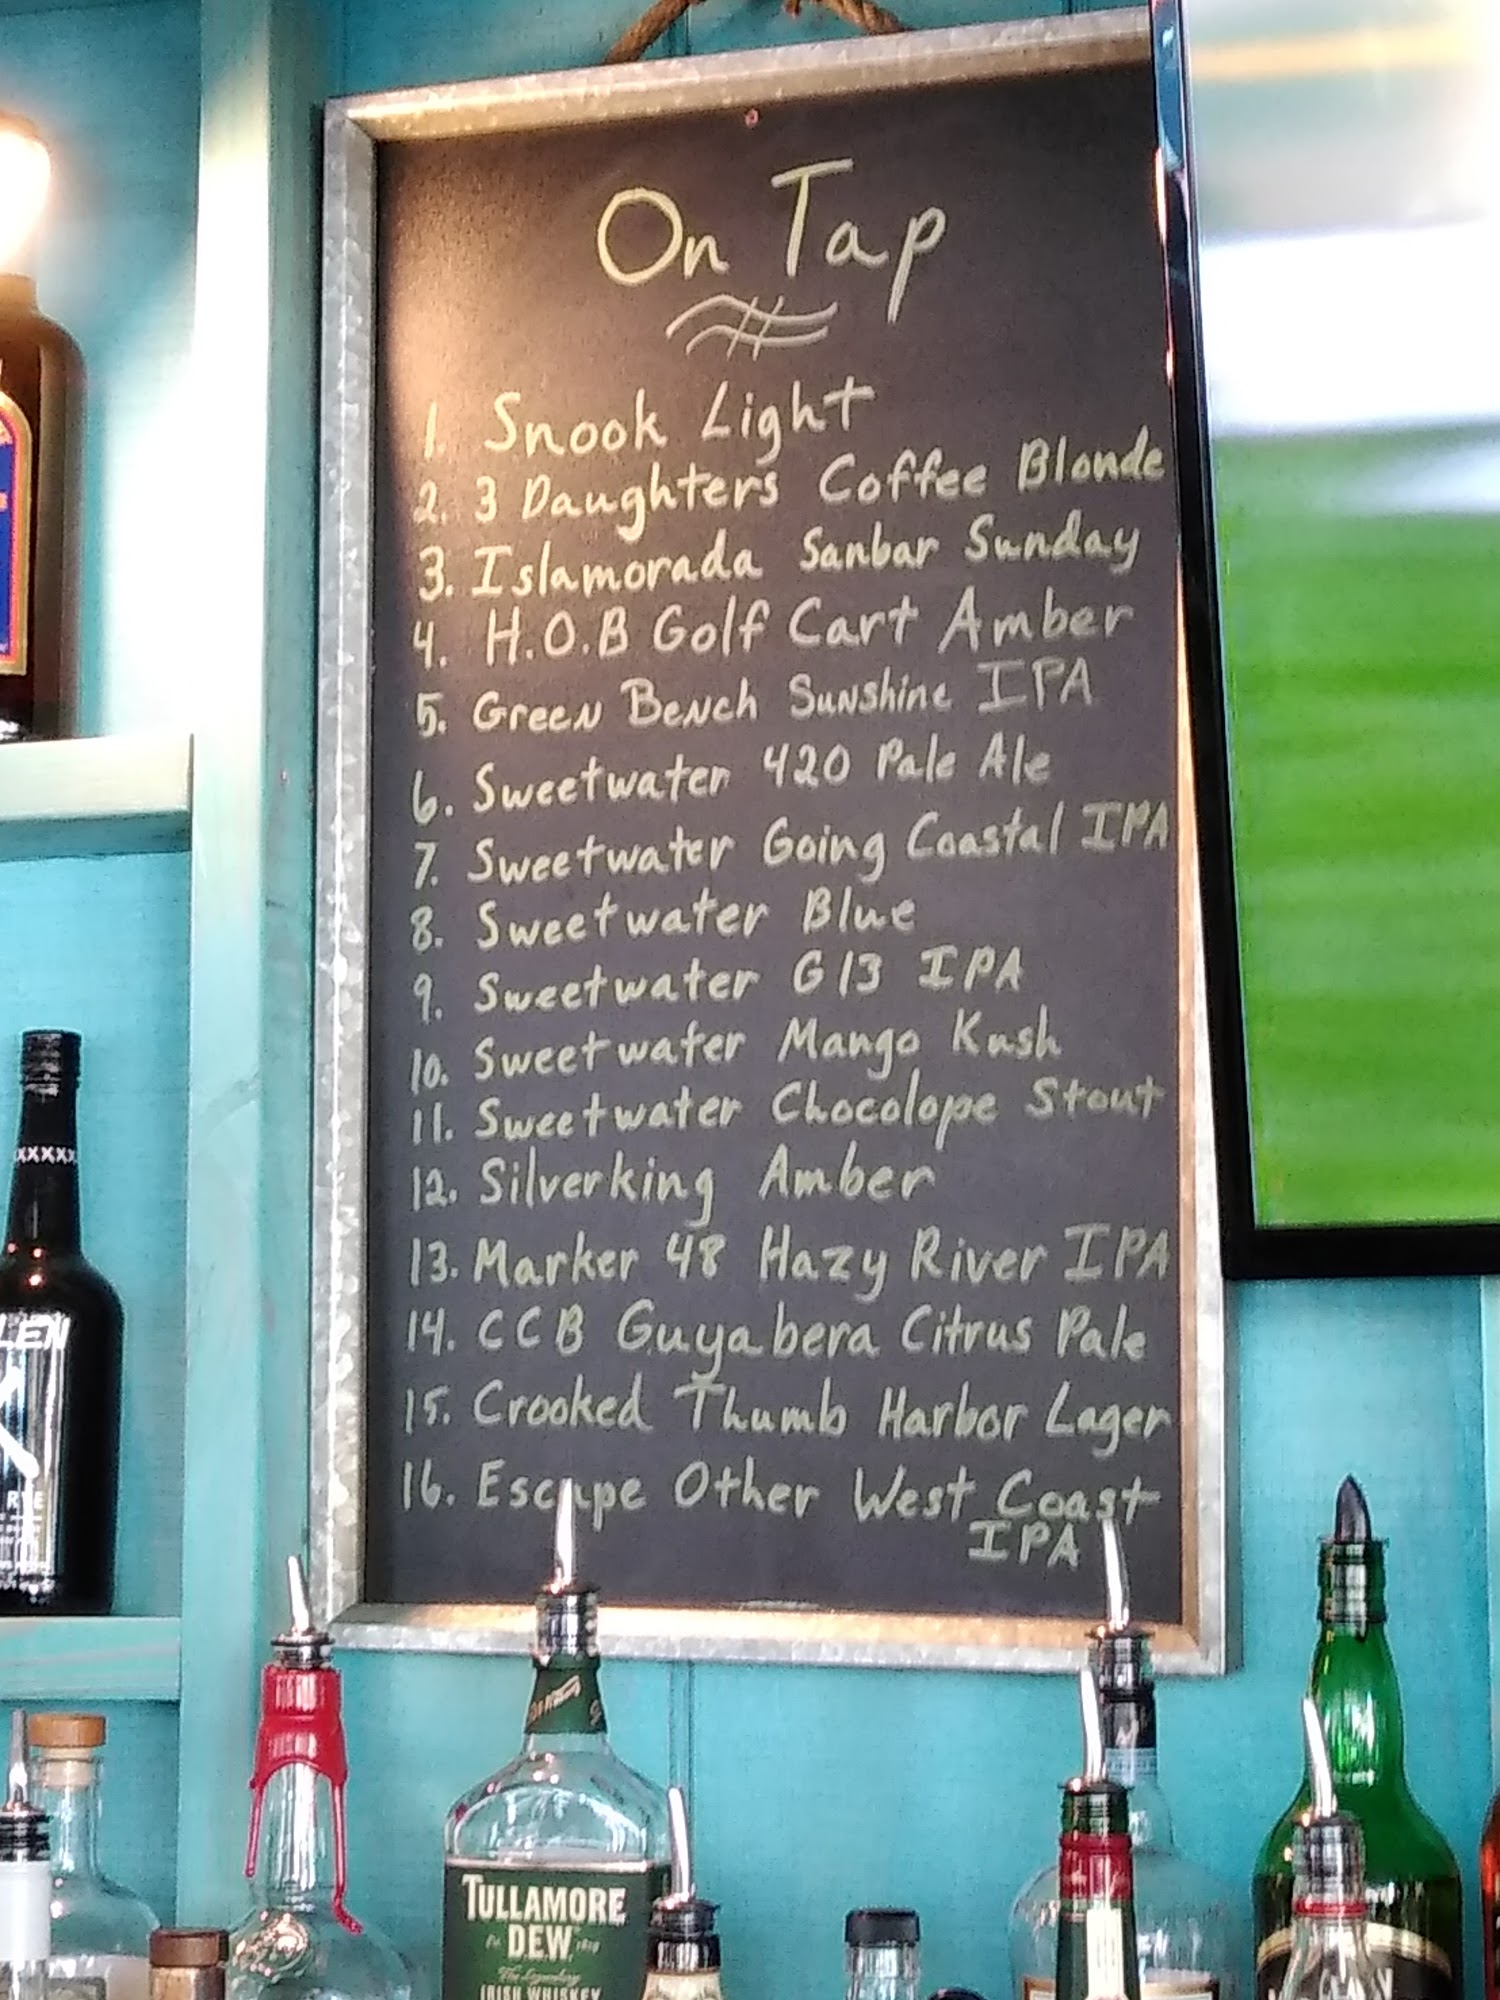 On Tap
1. Snook Light
2. 3 Daughters Coffee Blonde
3. Islamorada Sanbar Sunday
4. H.O.B Golf Cart Amber
5. Green Bench Sunshine IPA
6. Sweetwater 420 Pale Ale
7. Sweetwater Going Coastal IPA
8. Sweetwater Blue
9. Sweetwater G13 IPA
10. Sweetwater Mango Kush
11. Sweetwater Chocolope Stout
12. Silverking Amber
13. Marker 48 Hazy River IPA
14. CCB Guyabera Citrus Pale
15. Crooked Thumb Harbor Lager
16. Escape Other West Coast
IPA
XXXXX
LEN
RYE
TULLAMORE
DEW
The Legendary
IRISH WHISKEY